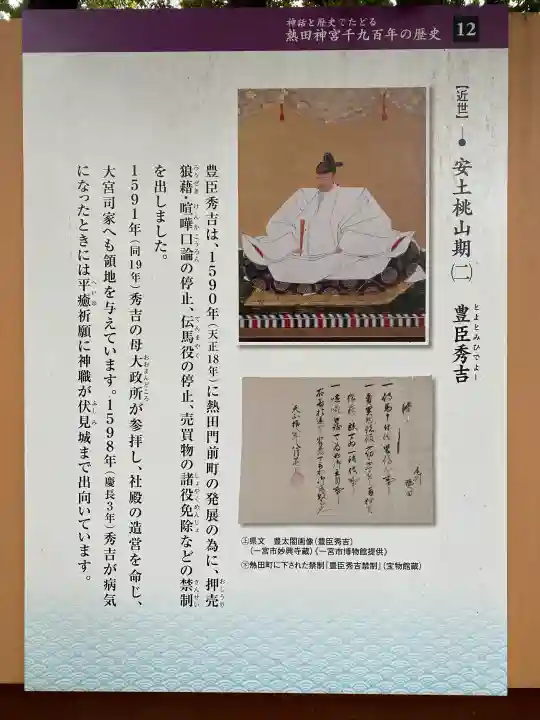 神話と歴史でたどる
熱田神宮千九百年の歴史
12
【近世】
安土桃山期(二)
豊臣秀吉
とよとみひでよし
豊臣秀吉は、1590年(天正18年)に熱田門前町の発展の為に、押売
狼藉・喧嘩口論の停止、伝馬役の停止、売買物の諸役免除などの禁制
を出しました。
1591年(同19年)秀吉の母大政所が参拝し、社殿の造営を命じ、
大宮司家へも領地を与えています。1598年(慶長3年)秀吉が病気
になったときには平癒祈願に神職が伏見城まで出向いています。
おしうり
ろうぜき
けんかこうろん
てんまやく
しょやくめんじょ
きんせい
おおまんどころ
へいゆ
ふしみ
㊤県文 豊太閤画像(豊臣秀吉)
(一宮市妙興寺蔵)《一宮市博物館提供》
㊦熱田町に下された禁制『豊臣秀吉禁制』(宝物館蔵)